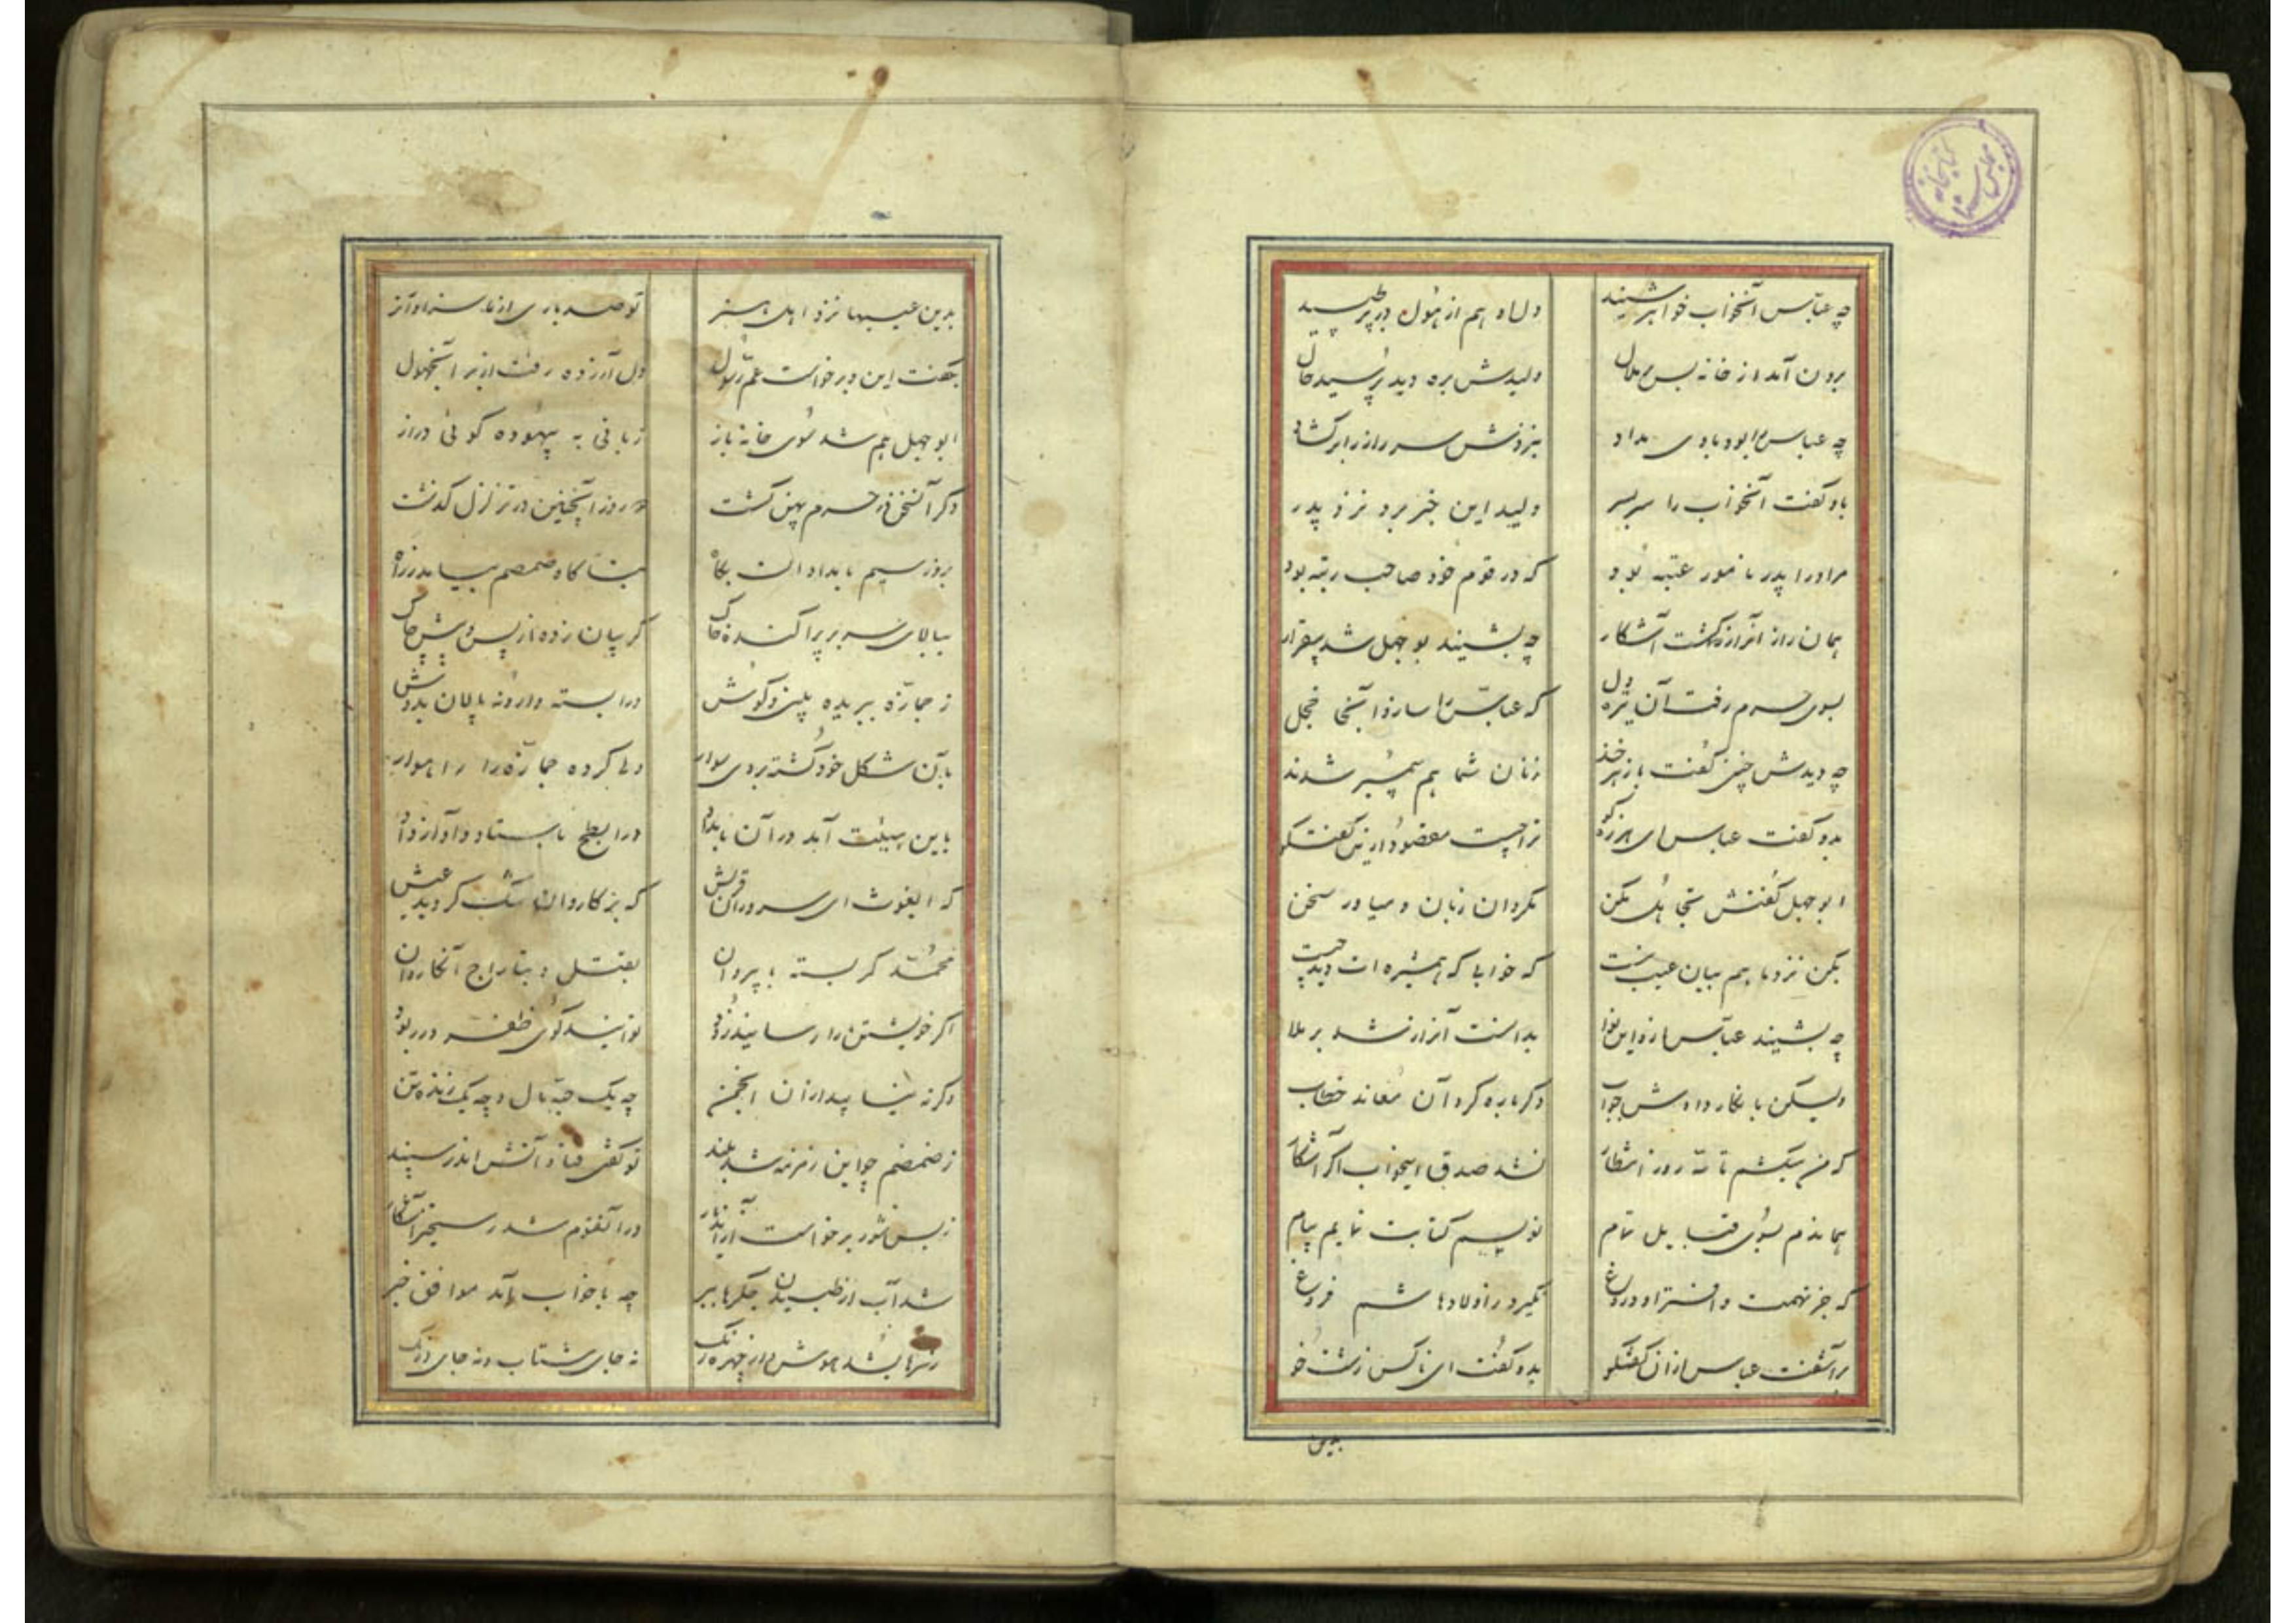 کتابخانه مجلس سنا
چه عباس آنخواب خواهر شنید دل او هم از هول در بر طپید
برون آمد از خانه بس پر ملال ولیدش بره دید پرسید حال
چه عباس را بود با وی وداد بنزدش سر راز را برگشاد
باو گفت آنخواب را سربسر ولید این خبر برد نزد پدر
مر او را پدر نامور عتبه بود که در قوم خود صاحب رتبه بود
همان راز از آنراز گشت آشکار چه بشنید بوجهل شد بیقرار
بسوی حرم رفت آن تیره دل که عباس را سازد آنجا خجل
چه دیدش چنین گفت باز هرخند زنان شما هم پیمبر شدند
بدو گفت عباس ای هرزه گو ترا چیست مقصود ازین گفتگو
ابوجهل گفتش تجاهل مکن مگردان زبان و میاور سخن
بکن نزد ما هم بیان عیب نیست که خوابی که همشیره ات دید چیست
چه بشنید عباس ازو این نوا بدانست آنراز شد برملا
ولیکن بانکار دادش جواب دگرباره کرد آن معاند خطاب
که من میکشم تا سه روز انتظار نشد صدق اینخواب اگر آشکار
هماندم بسوی قبایل تمام نویسم کتابت نمایم پیام
که جز تهمت و افترا و دروغ نگیرد ز اولاد هاشم فروغ
برآشفت عباس ازان گفتگو بدو گفت ای ناکس زشت خو
بدین
بدین عیبها نزد اهل هنر تو صد باری از ما سزاوارتر
بگفت این و برخواست عم رسول دل آزرده رفت از بر آنجهول
ابوجهل هم شد سوی خانه باز زبانی به بیهوده گوئی دراز
دگر آنسخن در حرم پهن گشت دو روز اینچنین در تزلزل گذشت
بروز سیم بامدادان بگاه بناگاه ضمضم بیامد ز راه
ببالای سر بر پراکنده خاک گریبان زده از پس و پیش چاک
ز جمازه ببریده بینی و گوش درا بسته وارونه پالان بدوش
بآن شکل خود گشته بر وی سوار رها کرده جمازه را راهوار
باین هیئت آمد در آن بامداد در ابطح باستاد و آواز داد
که الغوث ای سروران قریش که بر کاروان تنگ گردید عیش
محمد کمر بسته با پیروان بقتل و بتاراج آنکاروان
اگر خویشتن را رسانید زود توانید گوی ظفر در ربود
وگرنه نیابید ازان انجمن چه یک حبه مال و چه یک زنده تن
ز ضمضم چو این زمزمه شد بلند تو گفتی فتاد آتش اندر سپند
ز بس شور برخواست در آنقوم شد رستخیز آشکار
شد آب از طپیدن جگرها ببر چه با خواب آمد موافق خبر
ز سرها بشد هوش و از چهره رنگ نه جای شتاب و نه جای درنگ